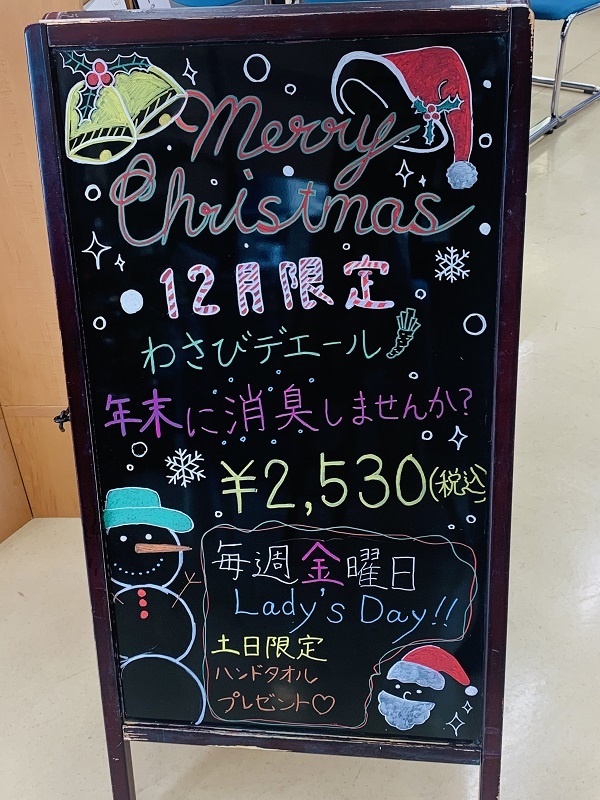 Merry
Christmas
12月限定
わさびデエール
年末に消臭しませんか?
¥2,530(税込)
毎週金曜日
Lady's Day!!
土日限定
ハンドタオル
プレゼント♡